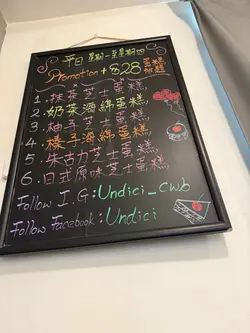 平日 星期一至星期四
Promotion + $28 蛋糕
1. 抹茶芝士蛋糕
2. 奶茶酒綿蛋糕
3. 柚子芝士蛋糕
4. 橙子酒綿蛋糕
5. 朱古力芝士蛋糕
6. 日式原味芝士蛋糕
Follow I.G:Undici_cwb
Follow Facebook:Undici